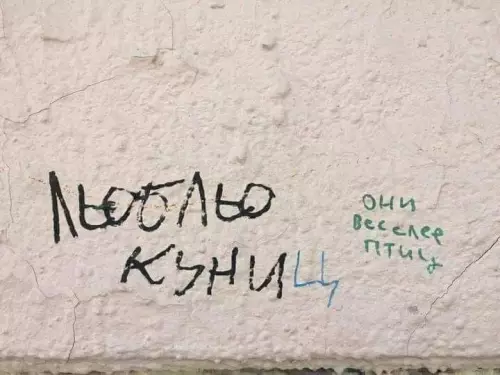 ЛЬОБЛЬО
КУНИЦ
ОНИ
Веселее
ПТИЦ